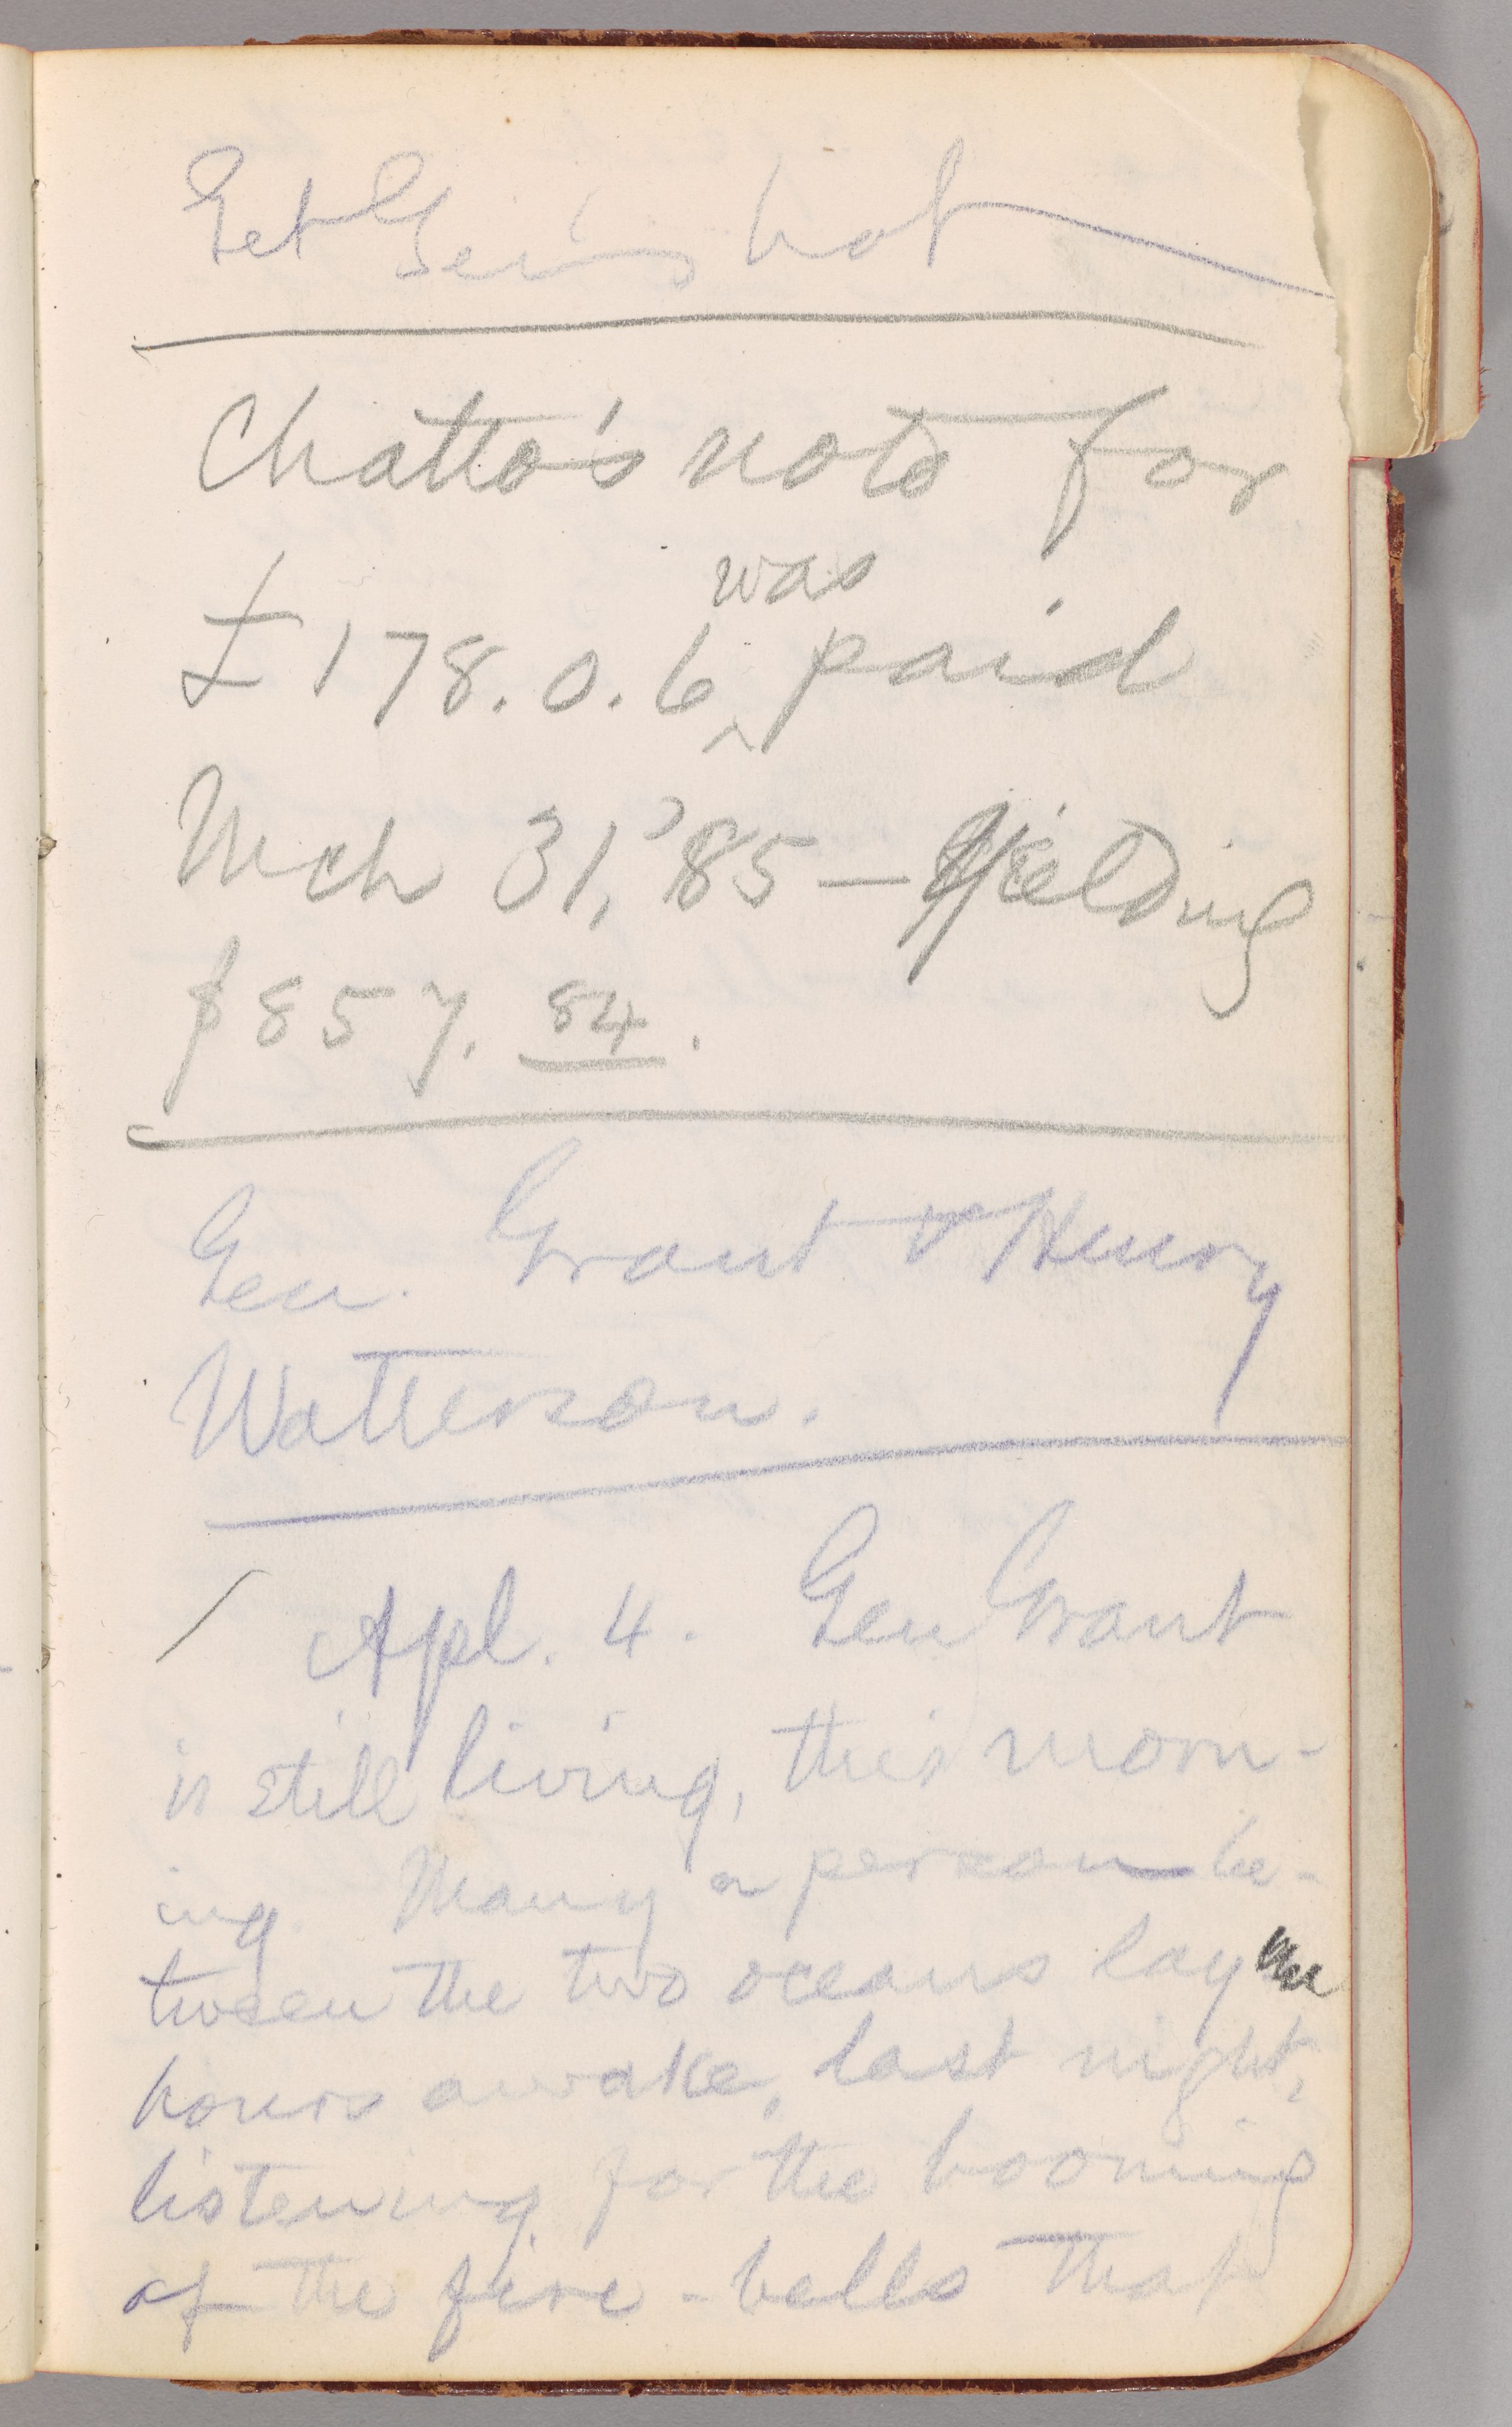 Get Gen's hat
Chatto's note for
was
£178.0.6 ‸ paid
Mch 31, '85 — yielding
$857. 84.
Gen. Grant & Henry
Watterson.
/ Apl. 4. Gen Grant
is still living, this morn-
ing. Many a person be-
tween the two oceans lay
hours awake, last night,
listening for the booming
of the fire-bells that